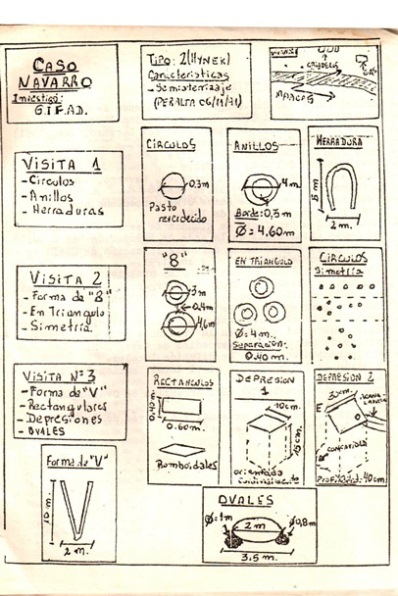 CASO
NAVARRO
Investigó:
G.I.F.A.D.
Tipo: 2 (HYNEK)
Características
- Semiaterrizaje
MARCAS
VISITA 1
- Círculos
- Anillos
- Herraduras
CÍRCULOS
0,3m
Pasto
reverdecido
ANILLOS
4m
Borde: 0,5m
Ø = 4,60m
HERRADURA
2 m.
VISITA 2
- Forma de "8"
- En Triangulo
- Simetría.
"8"
3m
0,4m
4,6m
EN TRIANGULO
Ø: 4 m.
Separación:
0.40 m.
CÍRCULOS
Simetría
VISITA Nº 3
- Forma de "V"
- Rectangulares
- Depresiones
- OVALES
RECTANGULOS
0.40 m.
0.60 m.
Romboidales
DEPRESION
1
10cm.
15cm
orientado
DEPRESION 2
30cm.
E
CONCAVIDAD
Forma de "V"
10 m.
2 m.
OVALES
Ø=1m
2 m
Ø0,8m
3.5 m.